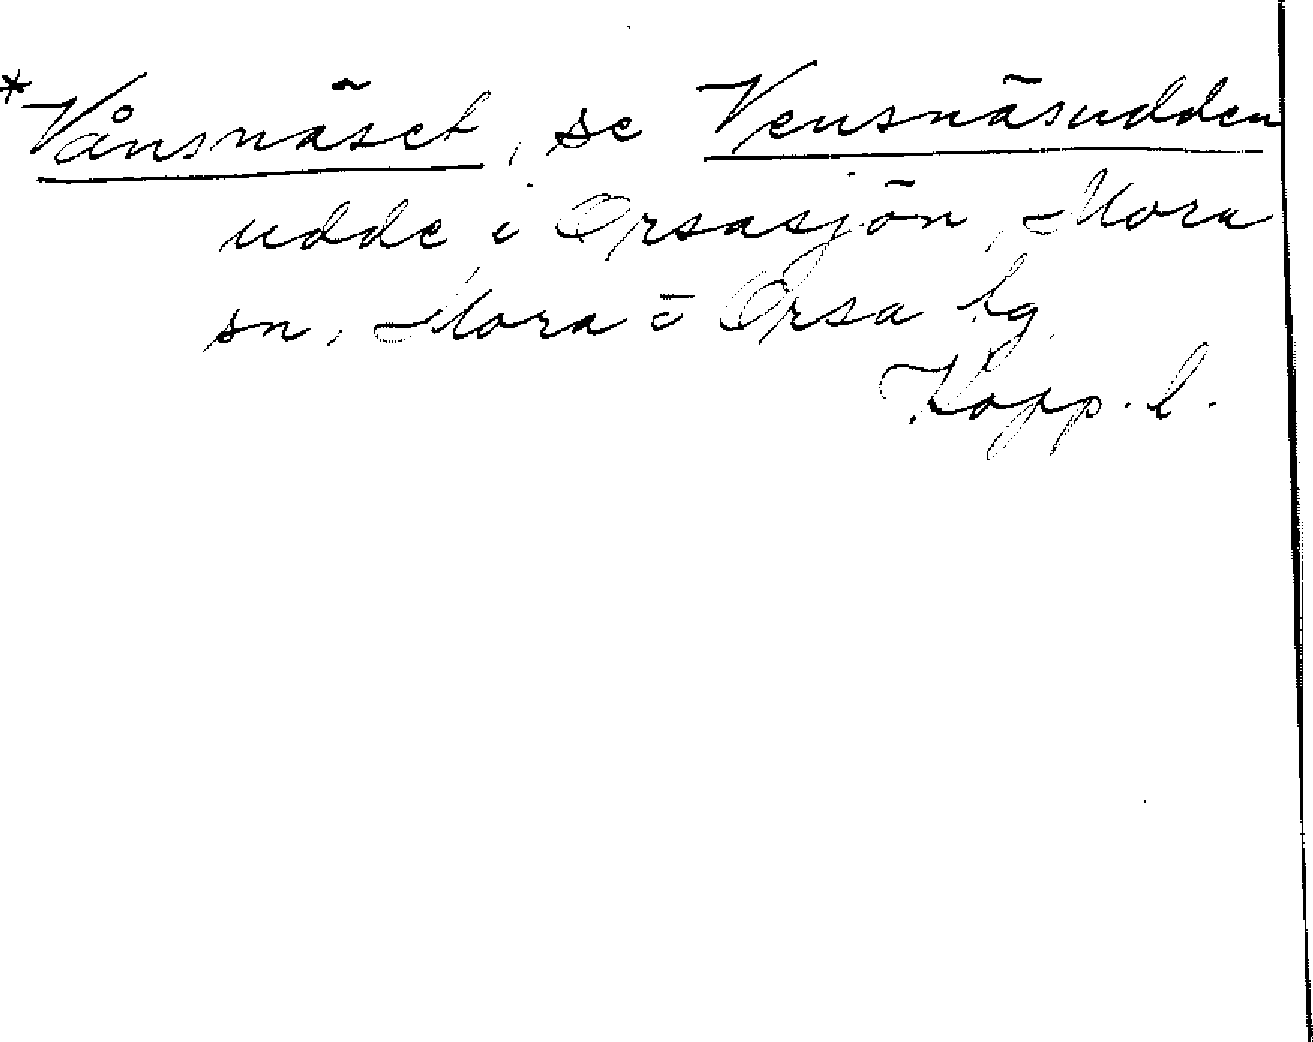 *Vånsnäset, se Vensnäsudden
udde i Orsasjön, Mora
sn, Mora o Orsa tg
Kopp. l.